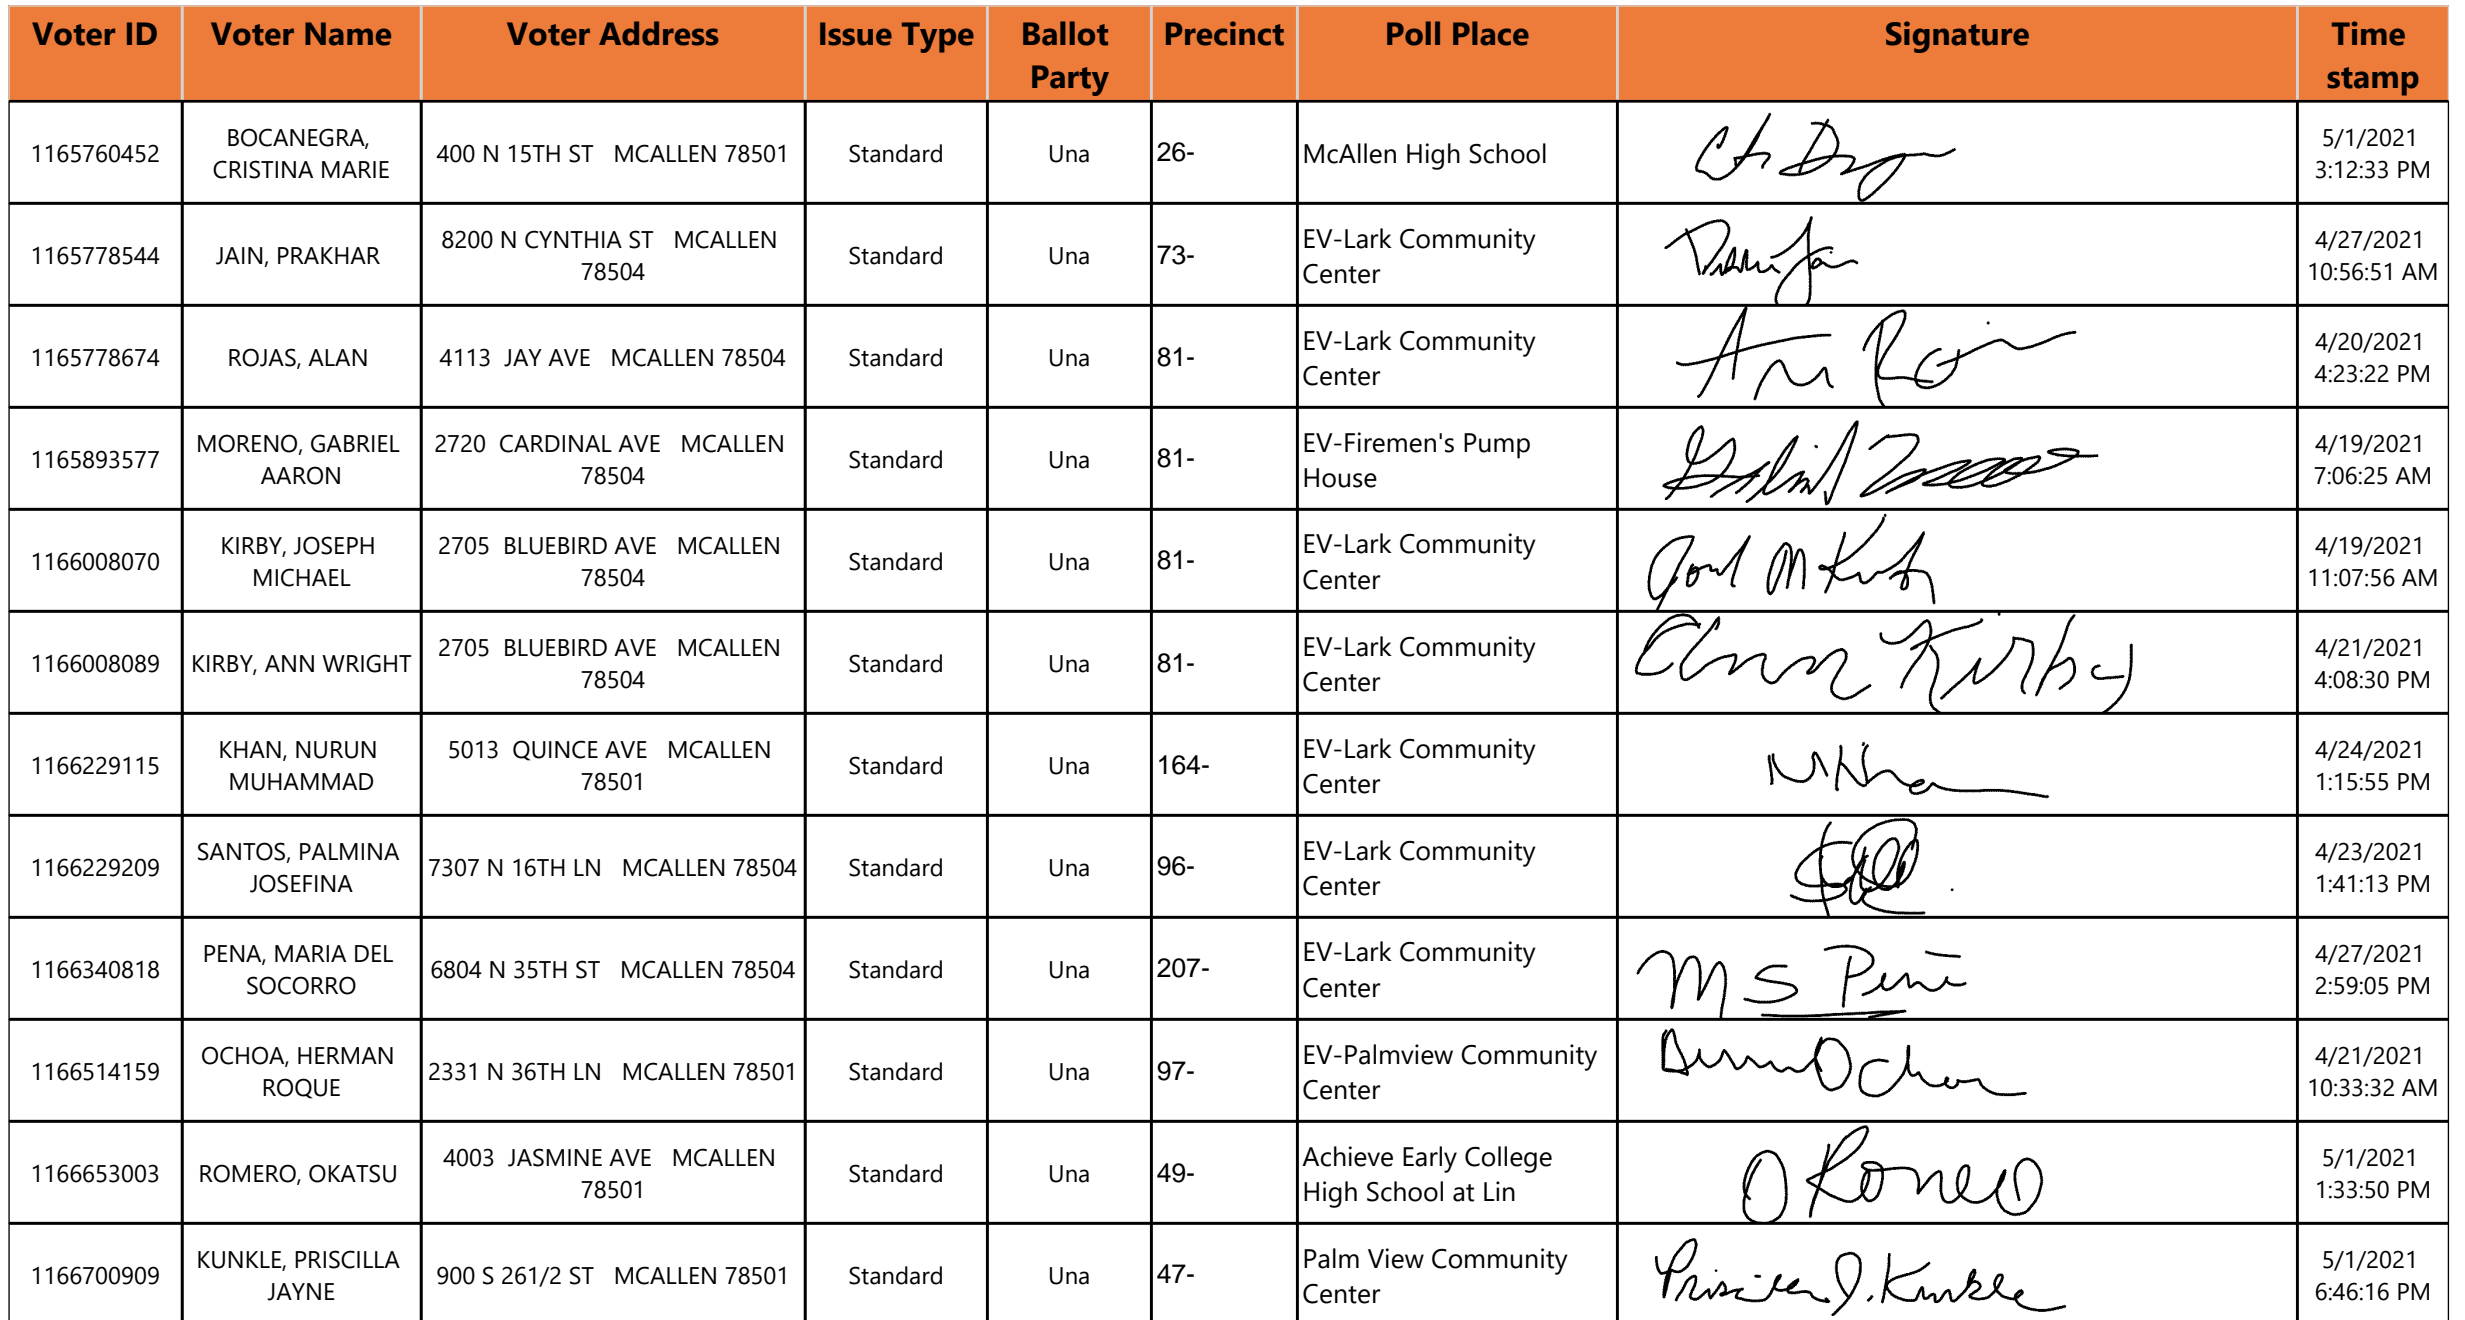 Voter ID Voter Name Voter Address Issue Type Ballot Party Precinct Poll Place Signature Time stamp
1165760452 BOCANEGRA, CRISTINA MARIE 400 N 15TH ST MCALLEN 78501 Standard Una 26- McAllen High School 5/1/2021 3:12:33 PM
1165778544 JAIN, PRAKHAR 8200 N CYNTHIA ST MCALLEN 78504 Standard Una 73- EV-Lark Community Center 4/27/2021 10:56:51 AM
1165778674 ROJAS, ALAN 4113 JAY AVE MCALLEN 78504 Standard Una 81- EV-Lark Community Center 4/20/2021 4:23:22 PM
1165893577 MORENO, GABRIEL AARON 2720 CARDINAL AVE MCALLEN 78504 Standard Una 81- EV-Firemen's Pump House 4/19/2021 7:06:25 AM
1166008070 KIRBY, JOSEPH MICHAEL 2705 BLUEBIRD AVE MCALLEN 78504 Standard Una 81- EV-Lark Community Center 4/19/2021 11:07:56 AM
1166008089 KIRBY, ANN WRIGHT 2705 BLUEBIRD AVE MCALLEN 78504 Standard Una 81- EV-Lark Community Center Ann Kirby 4/21/2021 4:08:30 PM
1166229115 KHAN, NURUN MUHAMMAD 5013 QUINCE AVE MCALLEN 78501 Standard Una 164- EV-Lark Community Center N Khan 4/24/2021 1:15:55 PM
1166229209 SANTOS, PALMINA JOSEFINA 7307 N 16TH LN MCALLEN 78504 Standard Una 96- EV-Lark Community Center 4/23/2021 1:41:13 PM
1166340818 PENA, MARIA DEL SOCORRO 6804 N 35TH ST MCALLEN 78504 Standard Una 207- EV-Lark Community Center M S Peña 4/27/2021 2:59:05 PM
1166514159 OCHOA, HERMAN ROQUE 2331 N 36TH LN MCALLEN 78501 Standard Una 97- EV-Palmview Community Center Ochoa 4/21/2021 10:33:32 AM
1166653003 ROMERO, OKATSU 4003 JASMINE AVE MCALLEN 78501 Standard Una 49- Achieve Early College High School at Lin O Romero 5/1/2021 1:33:50 PM
1166700909 KUNKLE, PRISCILLA JAYNE 900 S 261/2 ST MCALLEN 78501 Standard Una 47- Palm View Community Center Priscilla J. Kunkle 5/1/2021 6:46:16 PM